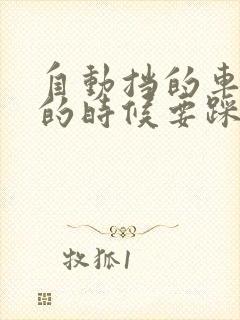 自動挡的車
的時候要踩
牧狐1